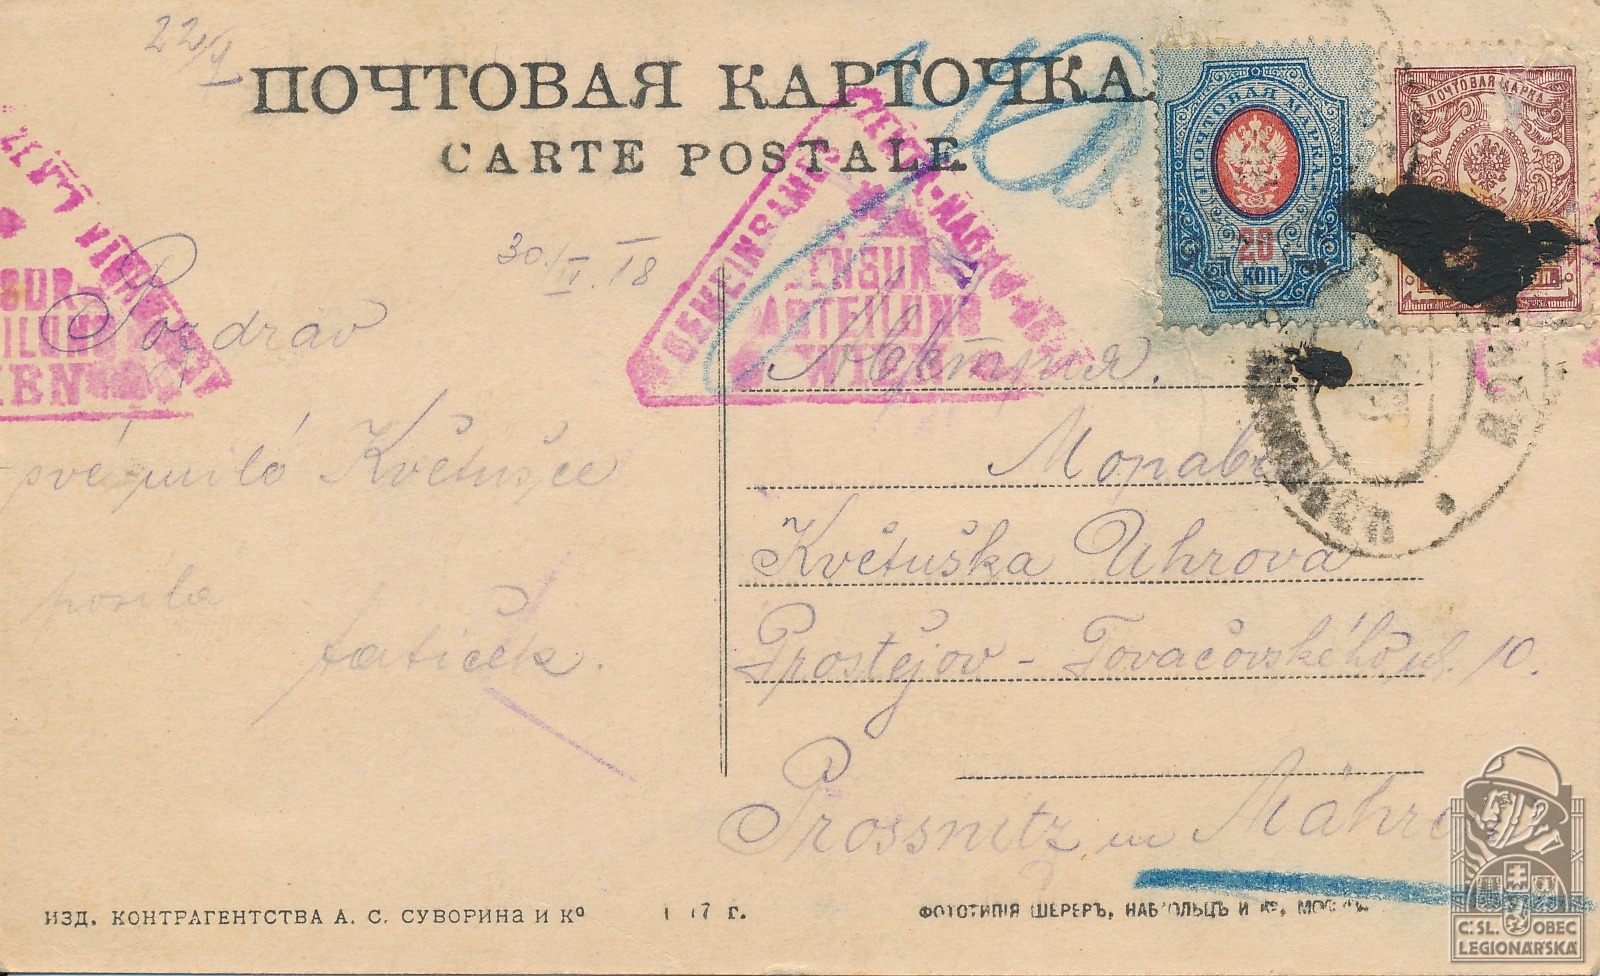 22/V
ПОЧТОВАЯ КАРТОЧКА
CARTE POSTALE
ПОЧТОВАЯ МАРКА
20
КОП
ПОЧТОВАЯ МАРКА
30./I. 18
ZENSUR-
ABTEILUNG
WIEN
Pozdrav
své milé Květušce
posílá
tatíček.
Австрия.
Морава
Květuška Uhrova
Prostějov - Tovačovského ul. 10.
Prossnitz in Mähre
ИЗД. КОНТРАГЕНТСТВА А. С. СУВОРИНА И Кº
ФОТОТИПІЯ ШЕРЕРЪ, НАБГОЛЬЦЪ И Кº, МОСКВА
Č.SL. OBEC
LEGIONÁŘSKÁ